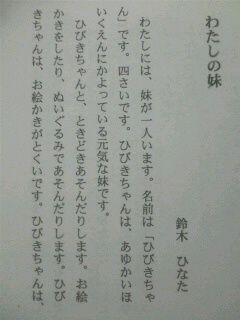 わたしの妹
鈴木 ひなた
わたしには、妹が一人います。名前は「ひびきちゃ
ん」です。四さいです。ひびきちゃんは、あゆかいほ
いくえんにかよっている元気な妹です。
ひびきちゃんと、ときどきあそんだりします。お絵
かきをしたり、ぬいぐるみであそんだりします。ひび
きちゃんは、お絵かきがとくいです。ひびきちゃんは、